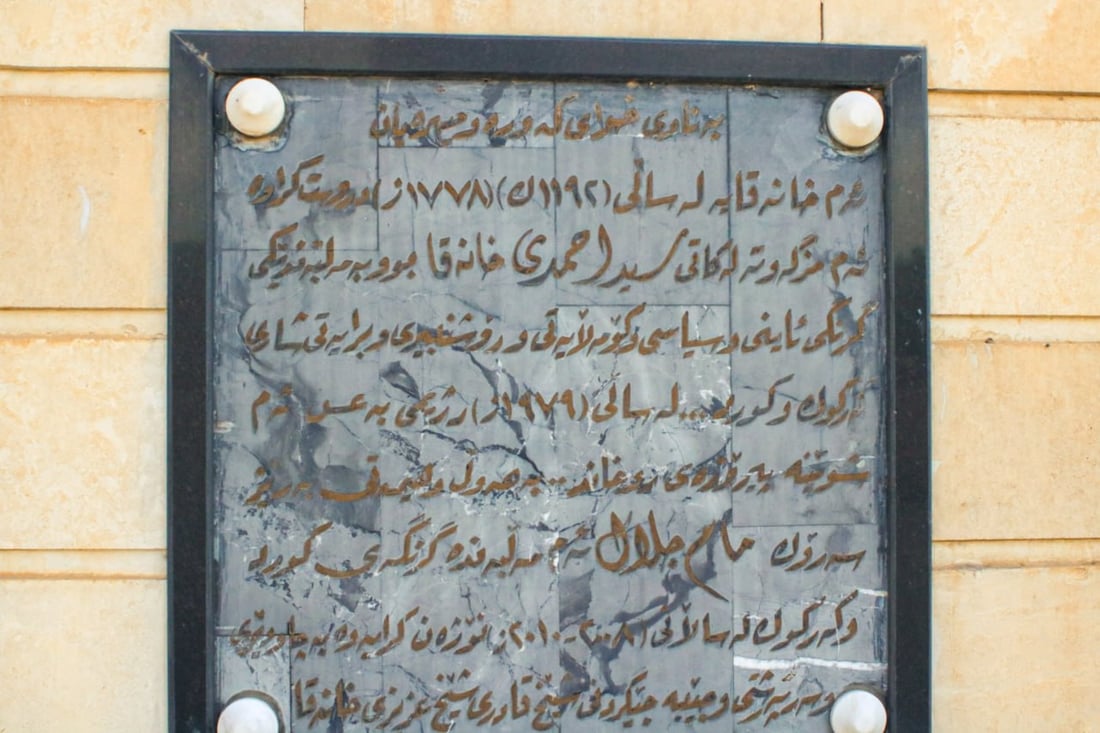 بەناوی خوای گەورە و میهرەبان
ئەم خانەقایە لە ساڵی (١١٩٢ک) (١٧٧٨ز) دروستکراوە
ئەم مزگەوتە لەکاتی سید احمدی خانەقا بووبە مەڵبەندێکی
گرنگی ئاینی و سیاسی و کۆمەڵایەتی و ڕۆشنبیری و برایەتی شاری
کەرکوک و کورد... لە ساڵی (١٩٧٩ز) ڕژێمی بەعس ئەم
شوێنە پیرۆزەی ڕوخاند.. بەهەوڵ و هیمەتی بەڕێز
سەرۆک مام جلال ئەم مەڵبەندە گرنگەی کورد
وکەرکوک لە ساڵانی ٢٠٠٨-٢٠١٠ز نۆژەن کرایەوە بە چاودێری
وسەرپەرشتی وجێبەجێکردنی شێخ قادری شێخ عزیزی خانەقا